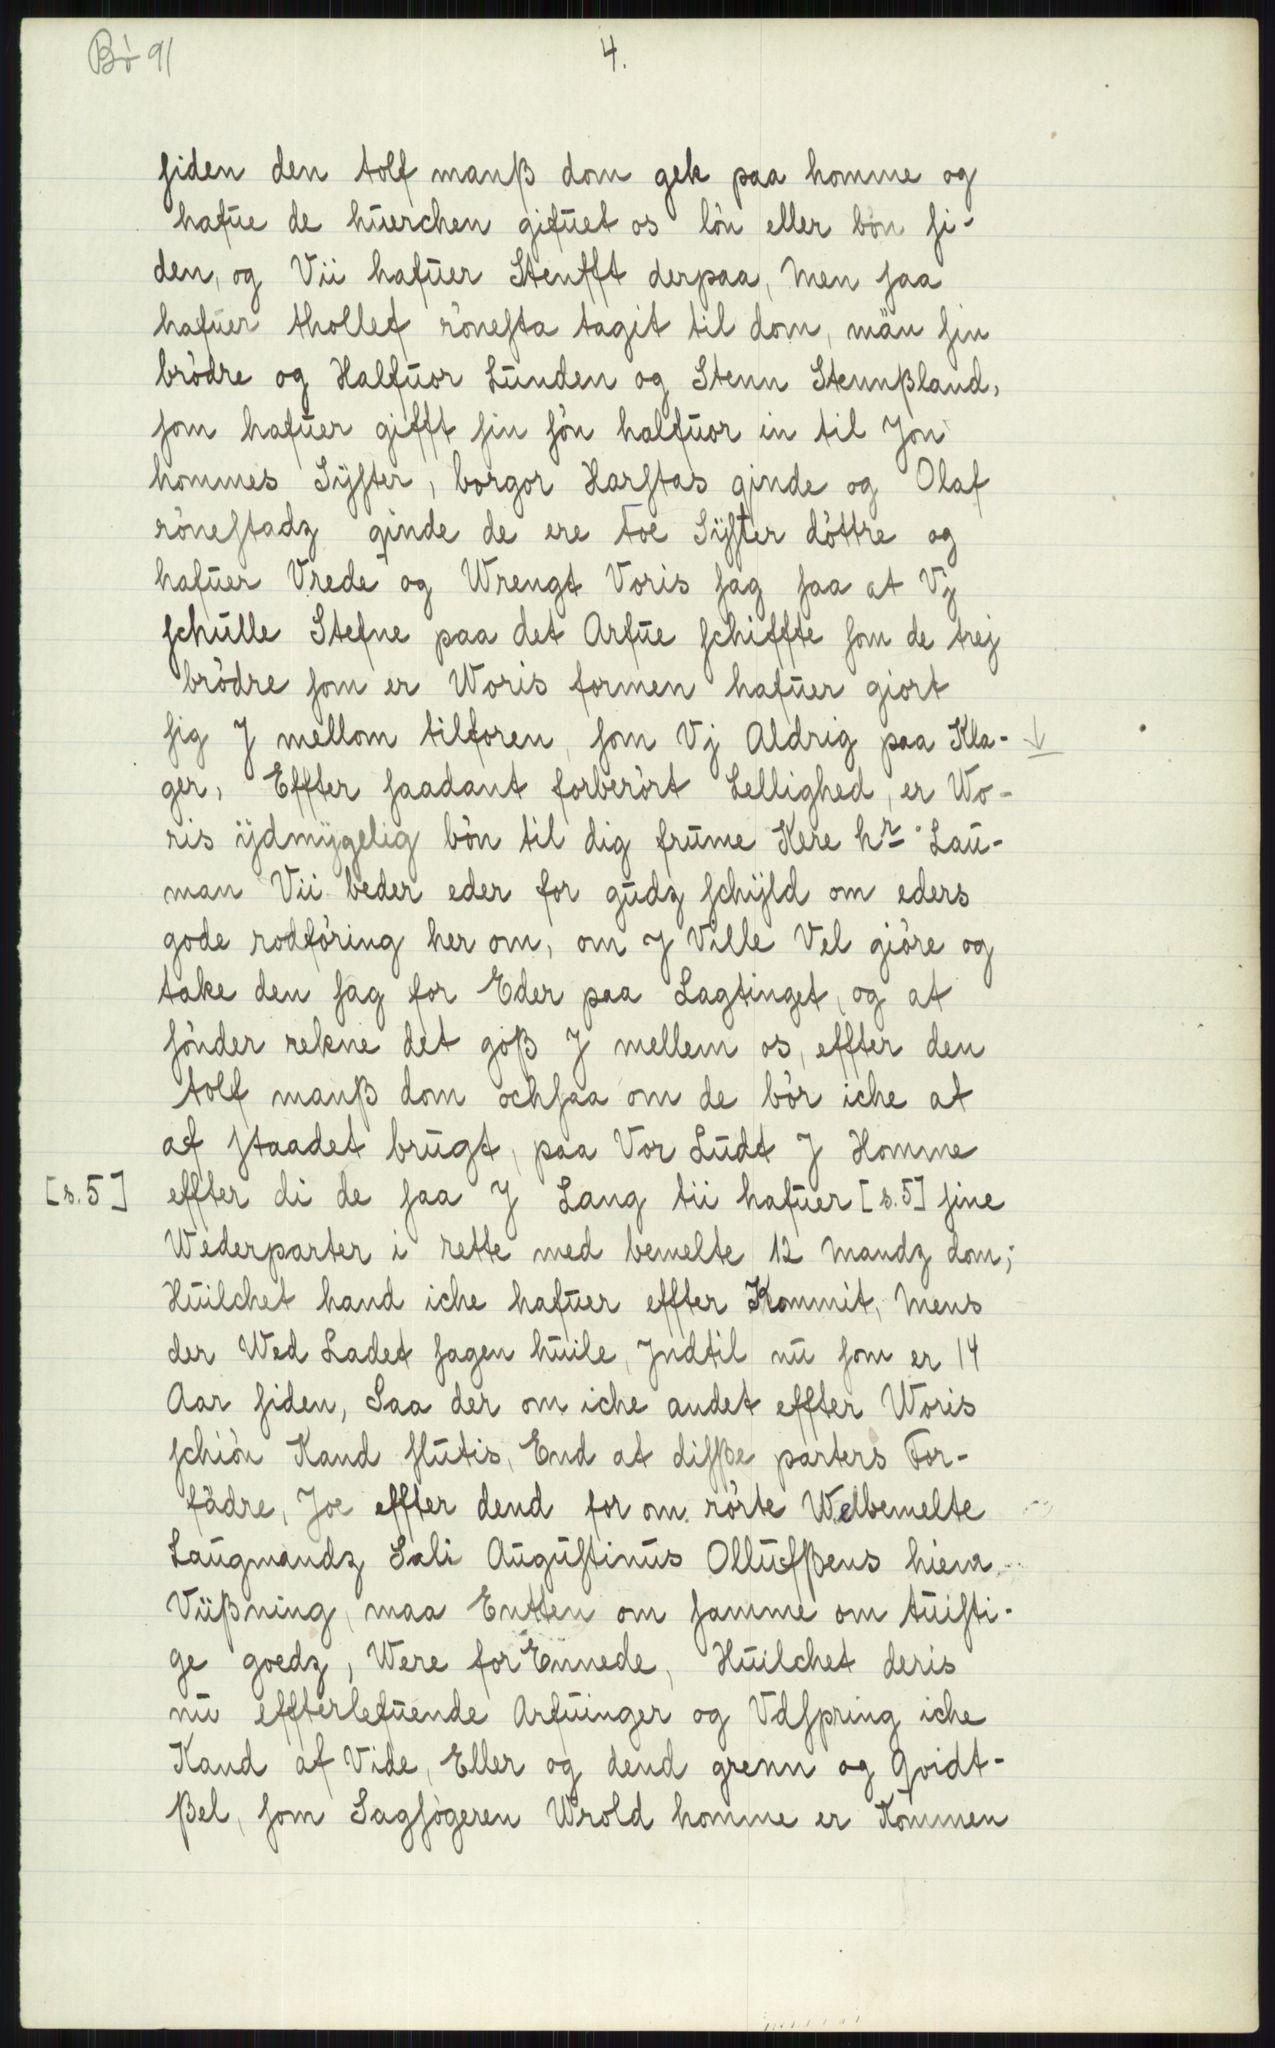 Bö 91
4.
siden den tolf manß dom gek paa homme og
hafue de huerchen gifuet os lön eller bön si-
den, og Vii hafuer Stenfft derpaa, Men saa
hafuer thollef rönesta tagit til dom, män sin
brödre og Halfuor Lunden og Stenn Stennßland,
som hafuer gifft sin sön halfuor in til Jon
hommes Syster, borgor Harstas qinde og Olaf
rönestadz qinde de ere Toe Syster döttre og
hafuer Vrede og Wrengt Voris sag saa at Vj
schulle Stefne paa det Arfue schiffte som de trej
brödre som er Woris formen hafuer giort
sig J mellom tilforen, som Vj Aldrig paa Kla-
ger, Effter saadant forberört Lellighed, er Wo-
ris ÿdmÿgelig bön til dig frume Kere hr Lau-
man Vii beder eder for gudz schÿld om eders
gode rodföring her om, om J Ville Vel giöre og
take den sag for Eder paa Lagtinget, og at
sönder rekne det goß J mellem os, effter den
tolf manß dom ochsaa om de bör iche at
af staadet brugt, paa Vor Ludt J Homme
[s. 5] effter di de saa J Lang tii hafuer [s. 5] sine
Wederparter i rette med bemelte 12 Mandz dom;
Huilchet hand iche hafuer effter Kommit, Mens
der Wed Ladet sagen huile, Jndtil nu som er 14
Aar siden, Saa der om iche andet effter Woris
schiön Kand slutis, End at disße parters For-
fädre, Joe effter dend for om rörte Welbemelte
Laugmandz Sali Augustinus Ollufßens hiem
Viißning, maa Entten om samme om tuisti-
ge goedz, Were for Ennede, Huilchet deris
nu effterlefuende Arfuinger og Vdspring iche
Kand af Vide, Eller og dend grenn og Qvidt-
ßel, som Sagsögeren Wrold homme er Kommen